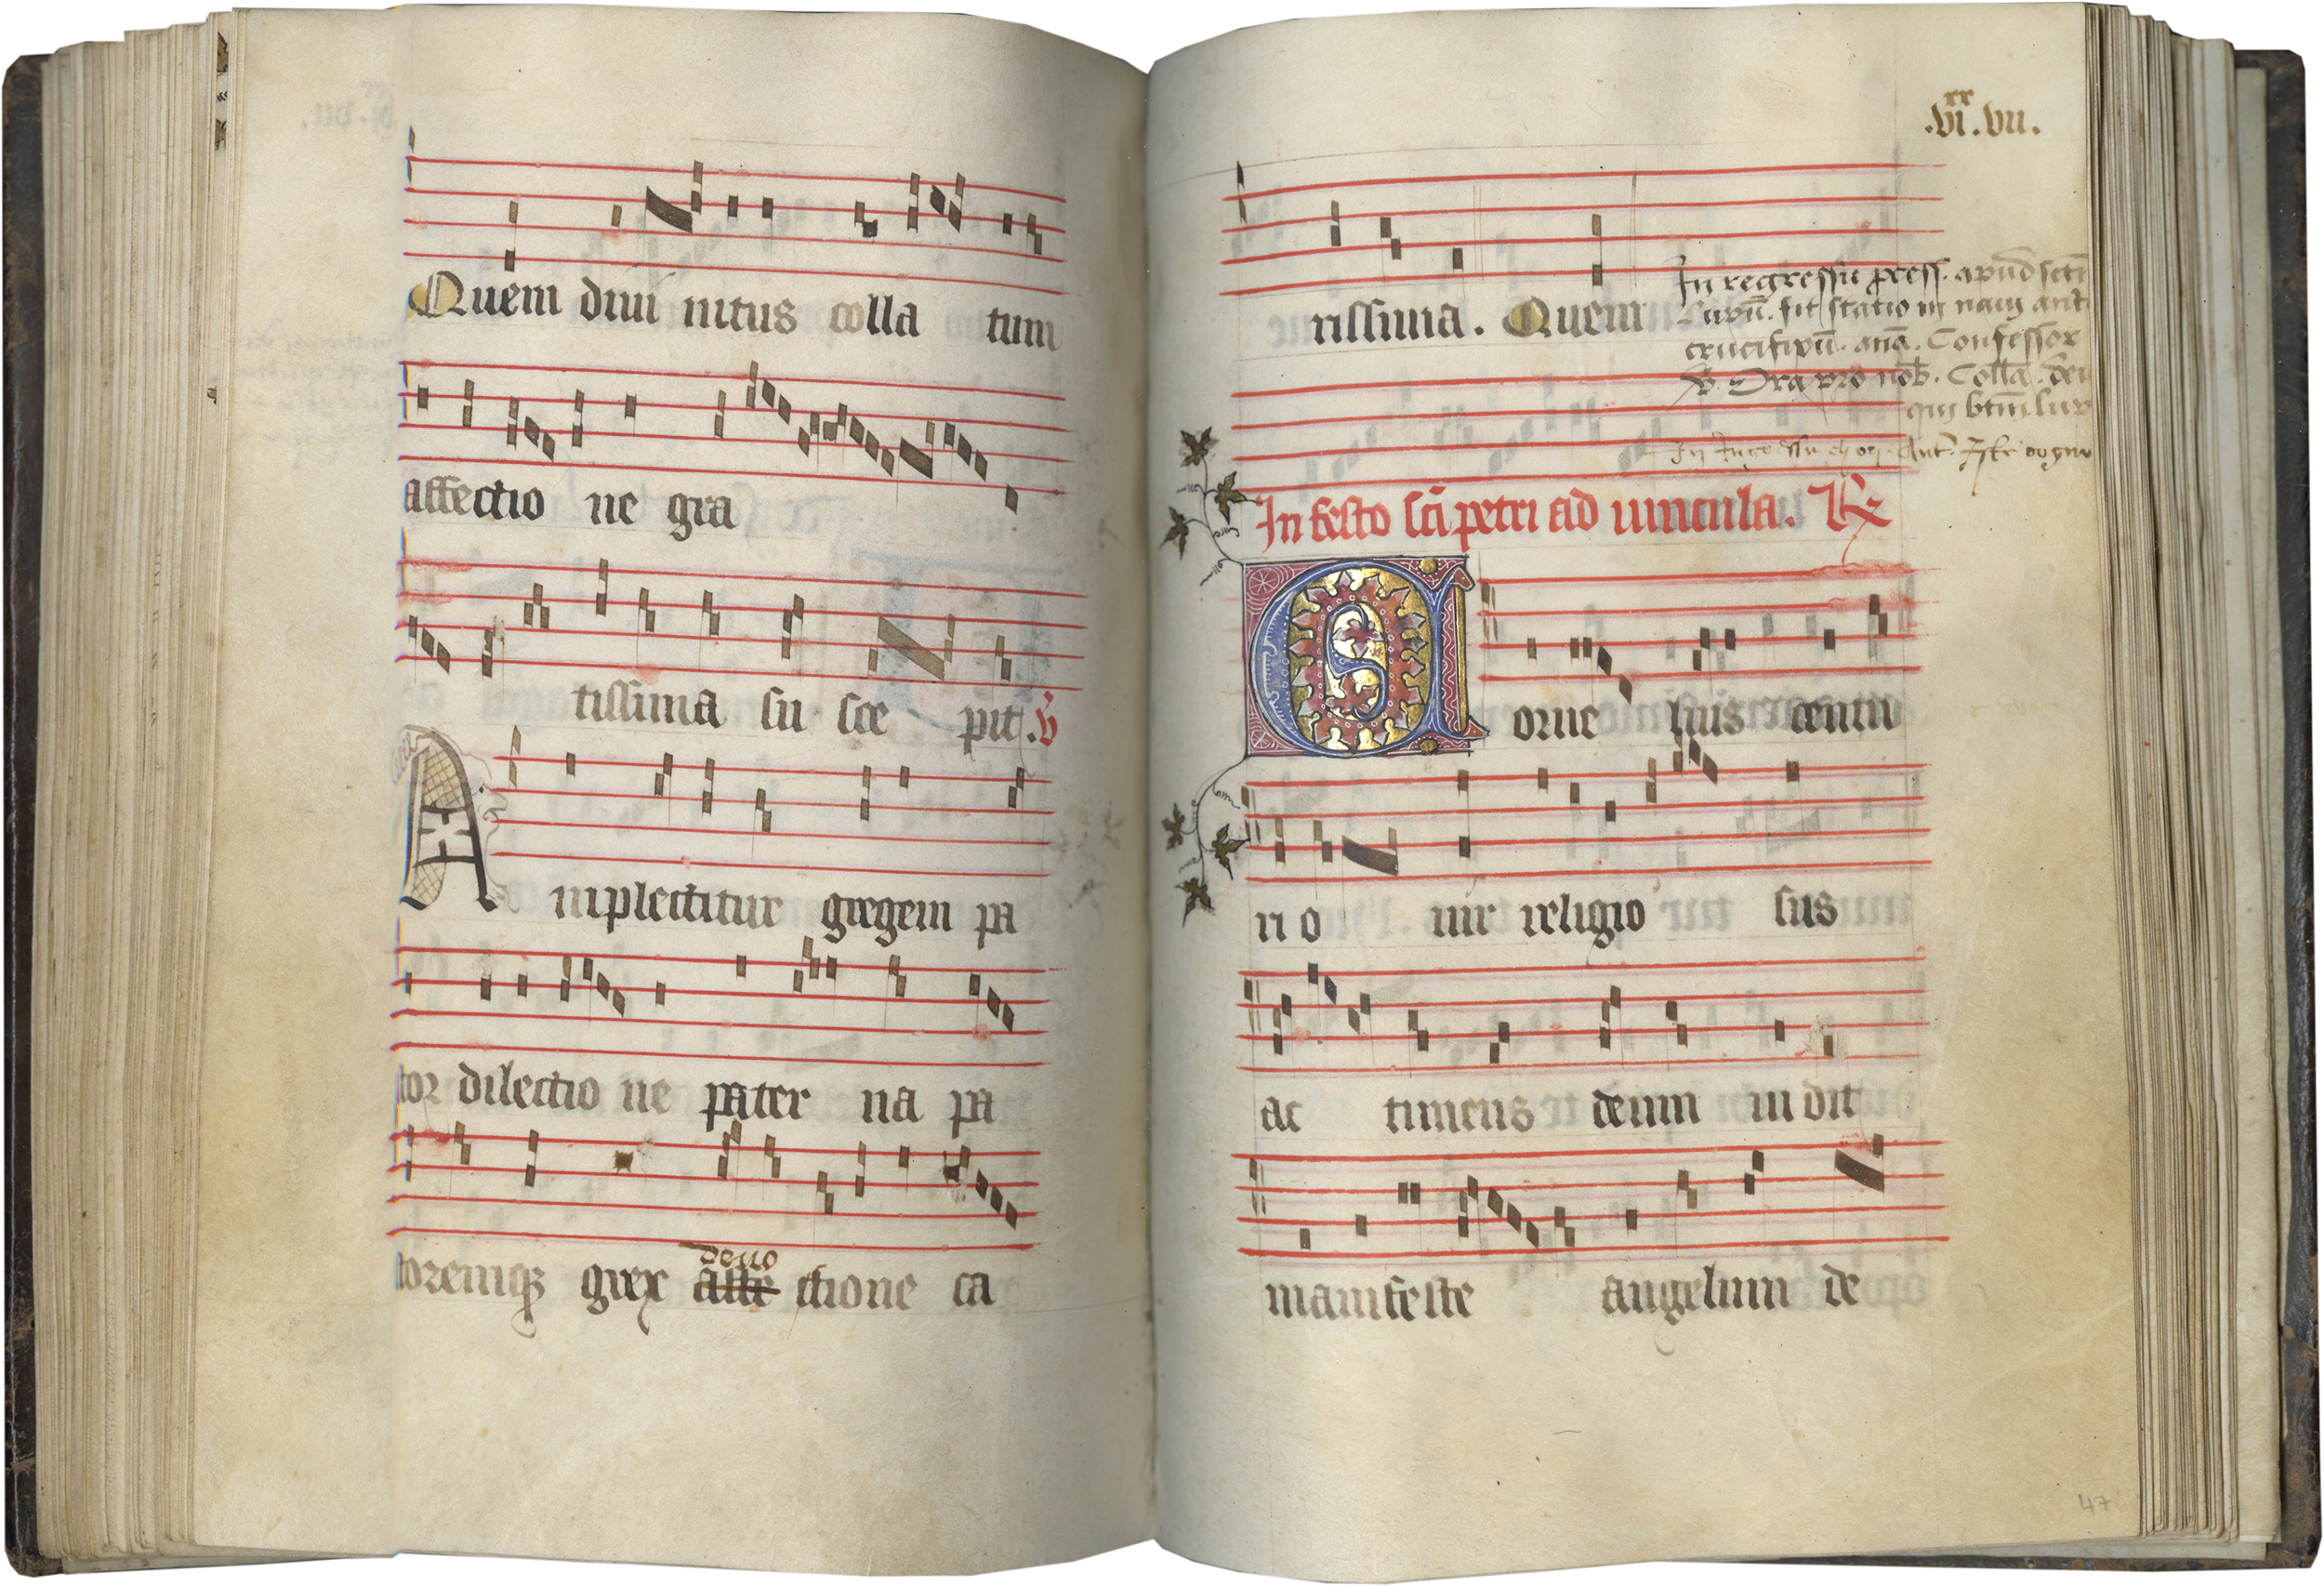 Quem diui nitus colla tum
affectio ne gra
tissima su sce pit. v̄
Amplectitur gregem pa
tor dilectio ne pater na pa
deuo
toremqꝫ grex affe ctione ca
.vi.^xx vii.
rissima. Quem
In regressu press. apud sctī
fit statio in naui ante
crucifixū. anā. Confessor
℣. Ora pro nob. Colla. deus
qui btm̄ lup
In festo sc̄i petri ad uincula. ℟
Cornelius centu
rio uir religio sus
ac timens deum uidit
manifeste angelum de
47